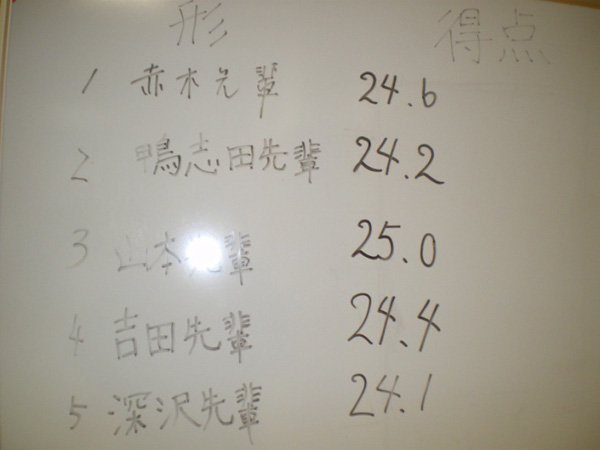 形 得点
1 赤木先輩 24.6
2 鴨志田先輩 24.2
3 山本先輩 25.0
4 吉田先輩 24.4
5 深沢先輩 24.1